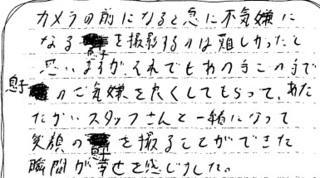 カメラの前になると急に不気嫌に
なる を撮影するのは難しかったと
思いますがそれでもあの手この手で
息子 のご気嫌を良くしてもらって、あた
たかいスタッフさんと一緒になって
笑顔の を撮ることができた
瞬間が幸せを感じました。